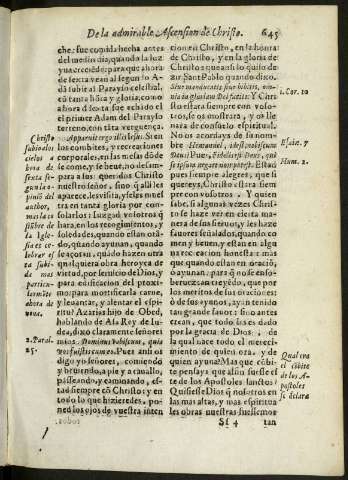 De la admirable Ascension de Christo. 645
che: fue cogida hecha antes
del medio dia, quando la luz
yua creciẽdo: para que ahora
de sexta vean al segundo A-
dã subir al Parayso celestial,
cõ tanta hõra y gloria, como
ahora de sexta fue echado el
el primer Adam del Parayso
terreno, con tãta verguença.
Apparuit ergo illis Iesus. Si en
los combites, y recreaciones
corporales, en las mesas dõde
se come, y se beue, no de sam-
para a sus queridos Christo
nuestro señor, sino q̃ alli les
aparece, les visita, y se les mues
tra en tanta gloria por con-
solarlos: Iuzgad vosotros q̃
hara, en los recogimientos, y
soledades, quando estan oran-
do, quando ayunan, quando
se açotan, quãdo hazen otra
qualquiera obra heroyca de
virtud, por seruicio de Dios, y
para edificacion del proxi-
mo, para mortificar la carne,
y leuantar, y alentar el espi-
ritu? Azarias hijo de Obed,
hablando de Asa Rey de Iu-
dea, dixo claramente: señores
mios. Dominus vobiscum, quia
vos fuistis cum eo. Pues ami os
digo yo señores, comiendo
y bruiendo, a pie y a cauallo,
passeando, y caminando, es-
tad siempre cõ Christo: y en
todo lo que hizieredes, po-
ned los ojos de vuestra inten
Christo
subio a los
cielos a
hora de
sexta se-
gun la o-
pinió del
author,
mas la co
stũbre de
la Igle-
sia es ce-
lebrar es
ta subi-
da mas
particu-
larmẽte
ahora de
nona.
2. Paral.
25.
cion en Christo, y en la honra
de Christo, y en la gloria de
Christo: esto es lo que quiso de
zir Sant Pablo quando dixo.
Siue manducatis siue bibitis, om-
nia in gloriam Dei facite: Y Chri
sto estara siempre con voso-
tros, os mirara, y no os fal-
tara de consuelo espiritual.
No os acordays de su nombre
Hemanuel, Id est, nobiscum
Deus? Pues, Fidelis est Deus, qui
se ipsum negare non potest. Està
pues siempre alegres, que si
quereys, Christo estara siem
pre con vosotros. Y quien
sabe, si algunas vezes Chris-
to se haze ver en cierta ma-
nera de sus sieruos, y les haze
fauores señalados, quando co
men y beuen, y estan en algu
na recreacion honesta: mas
que quando estan en oraciõ,
o ayunan, para q̃ no se ensó-
beruezcan creyẽdo, que por
los meritos de sus oraciones:
ò de sus ayunos, ayan tenido
tan grande fauor: sino antes
crean, que todo les es dado
por la gracia de Dios, de
la qual nace todo el mereci-
miento de quien ora, y de
quien ayuna? Mas que cõbi-
te pensays que aya sido este
de los Apostoles sanctos?
Quisiesse Dios q̃ nosotros en
las mas altas, y mas espiritua
les obras nuestras fuessemos
1. Cor. 10
Esai. 7
Num. 2.
Qual era
el cõbite
de los A-
postoles
se declara
Sf 4
tan